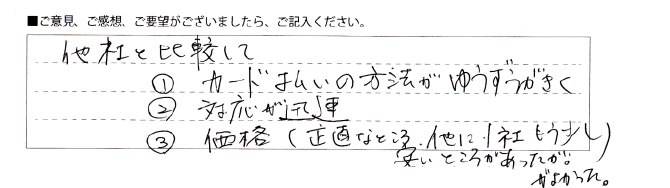 ■ご意見、ご感想、ご要望がございましたら、ご記入ください。
他社と比較して
① カード払いの方法がゆうずうがきく
② 対応が迅速
③ 価格(正直なところ、他に1社もう少し
安いところがあったが。)
がよかった。